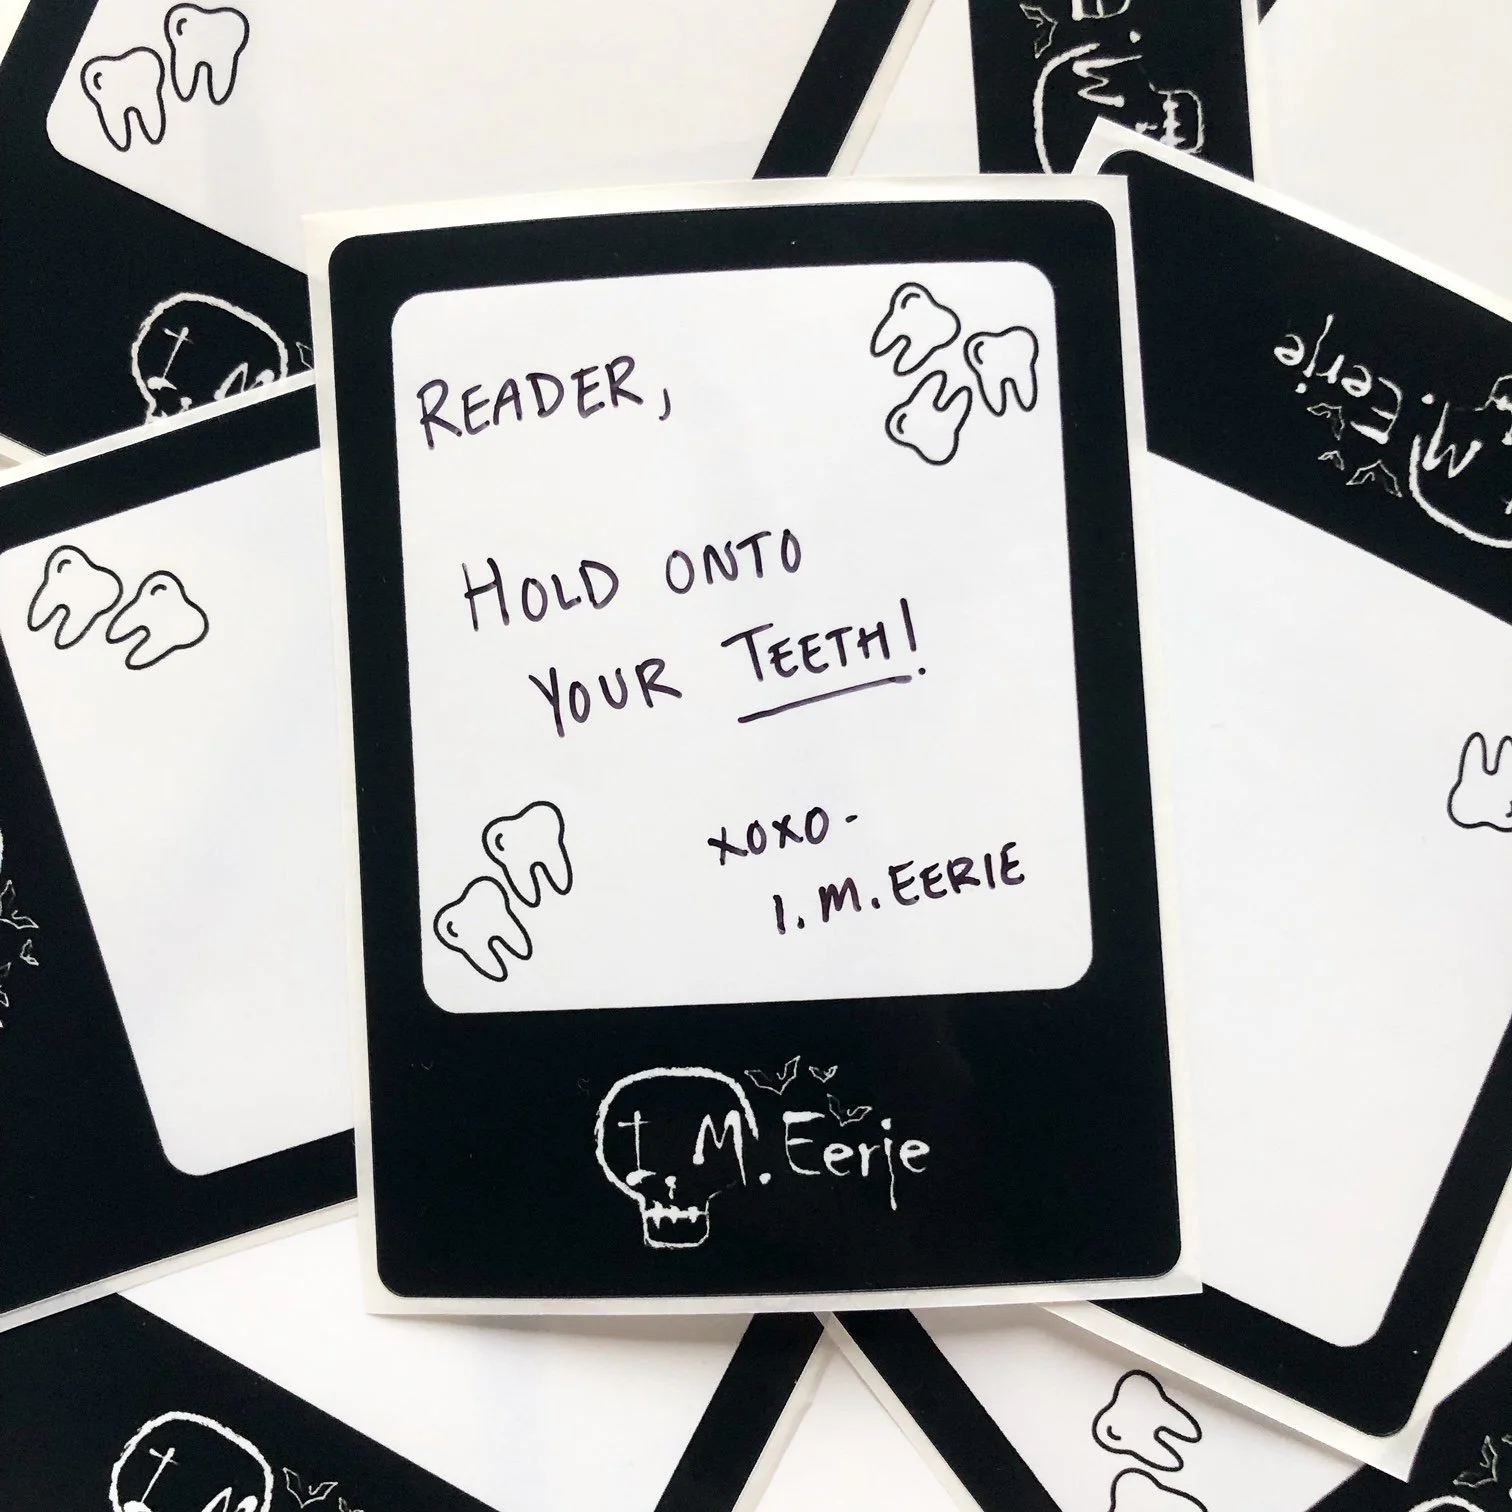 READER,
HOLD ONTO
YOUR TEETH!
xoxo-
I. M. EERIE
I M. Eerie
M. Eerie